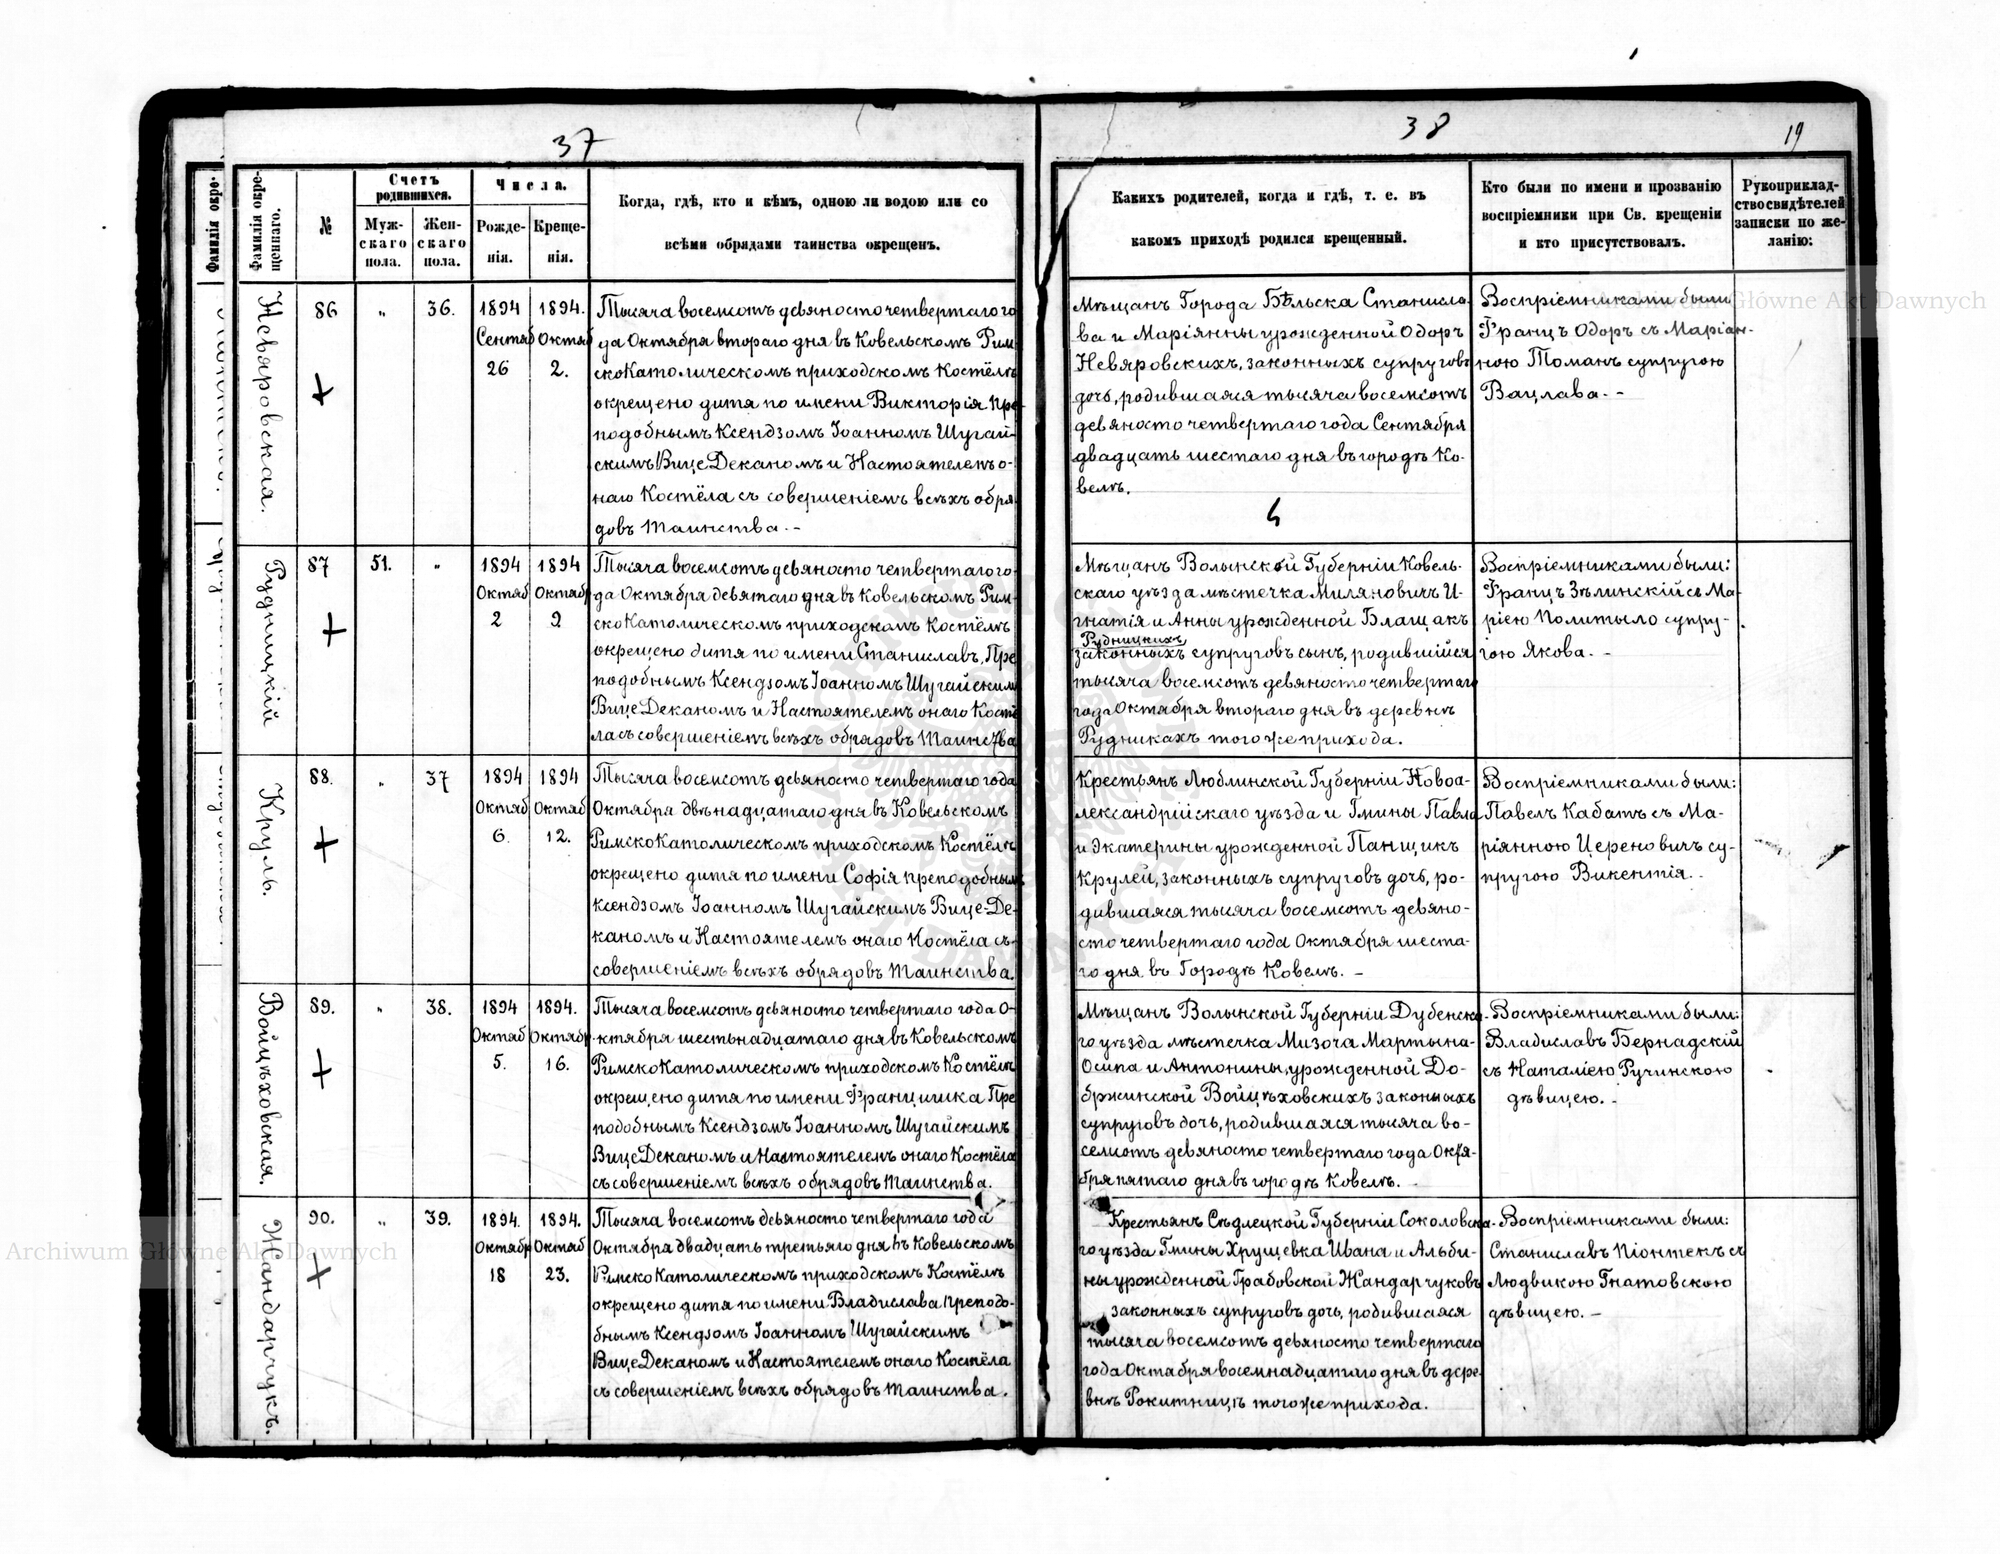 37
38
19
Фамилія окре-
Фамилія окре-
щеннаго.
№
Счетъ
родившихся.
Муж-
скаго
пола.
Жен-
скаго
пола.
Числа.
Рожде-
нія.
Креще-
нія.
Когда, гдѣ, кто и кѣмъ, одною ли водою или со
всѣми обрядами таинства окрещенъ.
Какихъ родителей, когда и гдѣ, т. е. въ
какомъ приходѣ родился крещенный.
Кто были по имени и прозванію
воспріемники при Св. крещеніи
и кто присутствовалъ.
Рукоприклад-
ство свидѣтелей
записки по же-
ланію:
Невяровская.
86
"
36.
1894
Сентяб
26
1894.
Октяб
2.
Тысяча восемсотъ девяносто четвертаго го
да Октября втораго дня въ Ковельскомъ Рим-
скоКатолическомъ приходскомъ Костёлѣ
окрещено дитя по имени Викторія Пре-
подобнымъ Ксендзомъ Іоанномъ Шугай-
скимъ ВицеДеканомъ и Настоятелемъ о-
наго Костёла съ совершеніемъ всѣхъ обря-
довъ Таинства. -
Мѣщанъ Города Бѣльска Станисла-
ва и Маріянны урожденной Одоръ
Невяровскихъ, законныхъ супруговъ
дочь, родившаяся тысяча восемсотъ
девяносто четвертаго года Сентября
двадцать шестаго дня въ городѣ Ко-
велѣ.
Воспріемниками были
Францъ Одоръ съ Маріан-
ною Томанъ супругою
Вацлава. -
Рудницкій
87
51.
"
1894
Октяб
2
1894
Октябр
9
Тысяча восемсотъ девяносто четвертаго го-
да Октября девятаго дня въ Ковельскомъ Рим-
скоКатолическомъ приходскомъ Костёлѣ
окрещено дитя по имени Станиславъ, Пре
подобнымъ Ксендзомъ Іоанномъ Шугайскимъ
ВицеДеканомъ и Настоятелемъ онаго Костё
ла съ совершеніемъ всѣхъ обрядовъ Таинства
Мѣщанъ Волынской Губерніи Ковель-
скаго уѣзда мѣстечка Миляновичъ И-
гнатія и Анны урожденной Блащакъ
Рудницкихъ
законныхъ супруговъ сынъ, родившійся
тысяча восемсотъ девяносто четвертаго
года Октября втораго дня въ деревнѣ
Рудникахъ тогоже прихода.
Воспріемниками были:
Францъ Зѣлинскій съ Ма-
ріею Политыло супру-
гою Якова. -
Круль.
88.
"
37
1894
Октяб
6.
1894
Октяб
12.
Тысяча восемсотъ девяносто четвертаго года
Октября двѣнадцатаго дня въ Ковельскомъ
РимскоКатолическомъ приходскомъ Костёлѣ
окрещено дитя по имени Софія преподобнымъ
Ксендзомъ Іоанномъ Шугайскимъ Вице-Де-
каномъ и Настоятелемъ онаго Костёла съ
совершеніемъ всѣхъ обрядовъ Таинства.
Крестьянъ Люблинской Губерніи Новоа-
лександрійскаго уѣзда и Гмины Павла
и Экатерины урожденной Панщикъ
Крулей, законныхъ супруговъ дочь, ро-
дившаяся тысяча восемсотъ девяно-
сто четвертаго года Октября шеста-
го дня въ Городѣ Ковелѣ. -
Воспріемниками были:
Павелъ Кабатъ съ Ма-
ріянною Цереновичъ су-
пругою Викентія.
Войцѣховская.
89.
"
38.
1894
Октяб
5.
1894.
Октябр.
16.
Тысяча восемсотъ девяносто четвертаго года О-
ктября шестьнадцатаго дня въ Ковельскомъ
РимскоКатолическомъ приходскомъ Костёлѣ
окрещено дитя по имени Францишка Пре
подобнымъ Ксендзомъ Іоанномъ Шугайскимъ
ВицеДеканомъ и Настоятелемъ онаго Костёла
съ совершеніемъ всѣхъ обрядовъ Таинства.
Мѣщанъ Волынской Губерніи Дубенска-
го уѣзда мѣстечка Мизоча Мартына-
Осипа и Антонины, урожденной До-
бржинской Войцѣховскихъ законыхъ
супруговъ дочь, родившаяся тысяча во-
семсотъ девяносто четвертаго года Октя-
бря пятаго дня въ городѣ Ковелѣ. -
Воспріемниками были:
Владиславъ Бернадскій
съ Наталіею Ручинскою
дѣвицею. -
Жандарчукъ.
90.
"
39.
1894.
Октябр
18
1894.
Октяб
23.
Тысяча восемсотъ девяносто четвертаго года
Октября двадцать третьяго дня въ Ковельскомъ
РимскоКатолическомъ приходскомъ Костёлѣ
окрещено дитя по имени Владислава Преподо-
бнымъ Ксендзомъ Іоанномъ Шугайскимъ
ВицеДеканомъ и Настоятелемъ онаго Костёла
съ совершеніемъ всѣхъ обрядовъ Таинства.
Крестьянъ Сѣдлецкой Губерніи Соколовска-
го уѣзда Гмины Хрущевка Ивана и Альби-
ны урожденной Грабовской Жандарчуковъ
законныхъ супруговъ дочь, родившаяся
тысяча восемсотъ девяносто четвертаго
года Октября восемнадцатаго дня въ дере-
внѣ Рокитницѣ тогоже прихода.
Воспріемниками были:
Станиславъ Піонтекъ съ
Людвикою Гнатовскою
дѣвицею. -
Archiwum Główne Akt Dawnych
Archiwum Główne Akt Dawnych